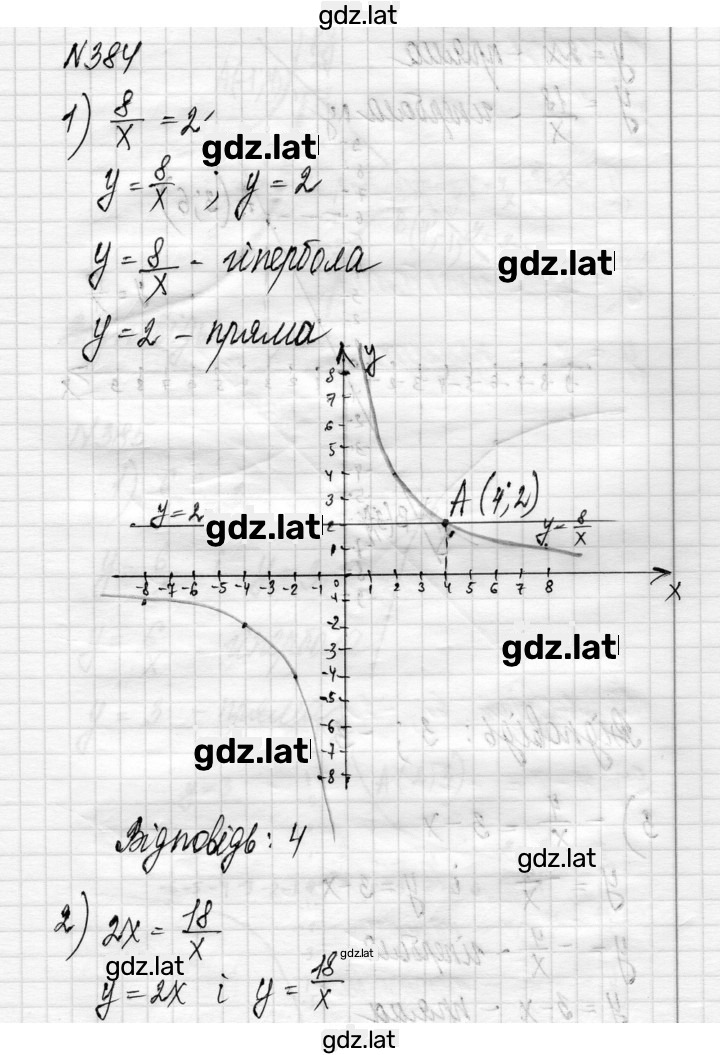 gdz.lat
№384
1) 8/x = 2
gdz.lat
y = 8/x ; y = 2
y = 8/x - гіпербола
gdz.lat
y = 2 - пряма
y
8
7
6
5
4
3
2
1
A (4; 2)
y = 2
gdz.lat
y = 8/x
-8 -7 -6 -5 -4 -3 -2 -1 0 1 2 3 4 5 6 7 8
x
-1
-2
-3
-4
-5
-6
-7
-8
gdz.lat
gdz.lat
Відповідь: 4
gdz.lat
2) 2x = 18/x
gdz.lat
gdz.lat
y = 2x і y = 18/x
gdz.lat